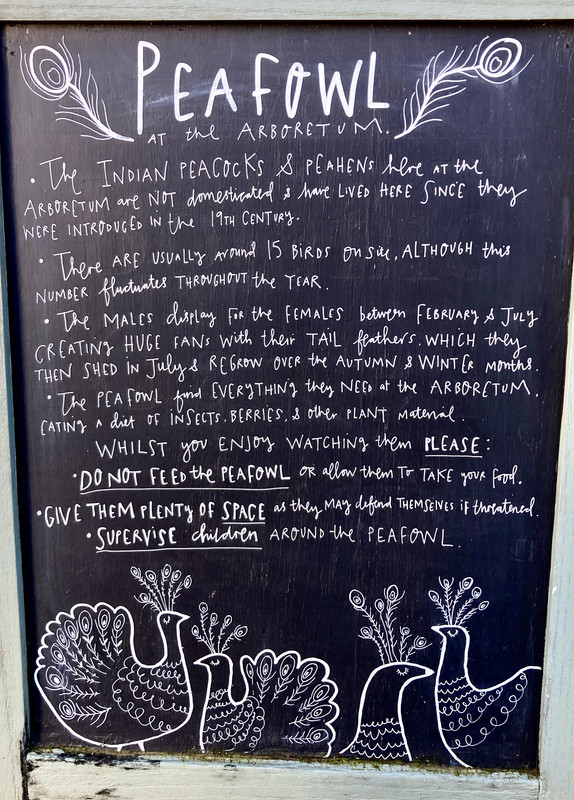 PEAFOWL
AT the ARBORETUM.
• The INDIAN PEACOCKS & PEAHENS here AT the
ARBORETUM are NOT domesticated & have LIVED HERE SINCE they
WERE INTRODUCED IN the 19TH CENTURY.
• There ARE USUALLY around 15 BIRDS on site, ALTHOUGH this
NUMBER fluctuates THROUGHOUT the YEAR.
• The MALES display FOR the FEMALES between FEBRUARY & JULY
CREATING HUGE FANS with their TAIL feathers. WHICH they
THEN SHED in July & REGROW OVER the AUTUMN & WINTER months.
• The PEAFOWL find EVERYTHING they NEED at the ARBORETUM,
EATING a diet OF INSECTS, BERRIES, & other PLANT material.
WHILST you ENJOY WATCHING them PLEASE:
• DO NOT FEED the PEAFOWL OR allow them TO TAKE your food.
• GIVE THEM PLENTY OF SPACE as they MAY defend THEMSELVES if threatened.
• SUPERVISE children AROUND the PEAFOWL.